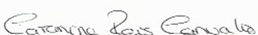 Catarina Reis Carvalho